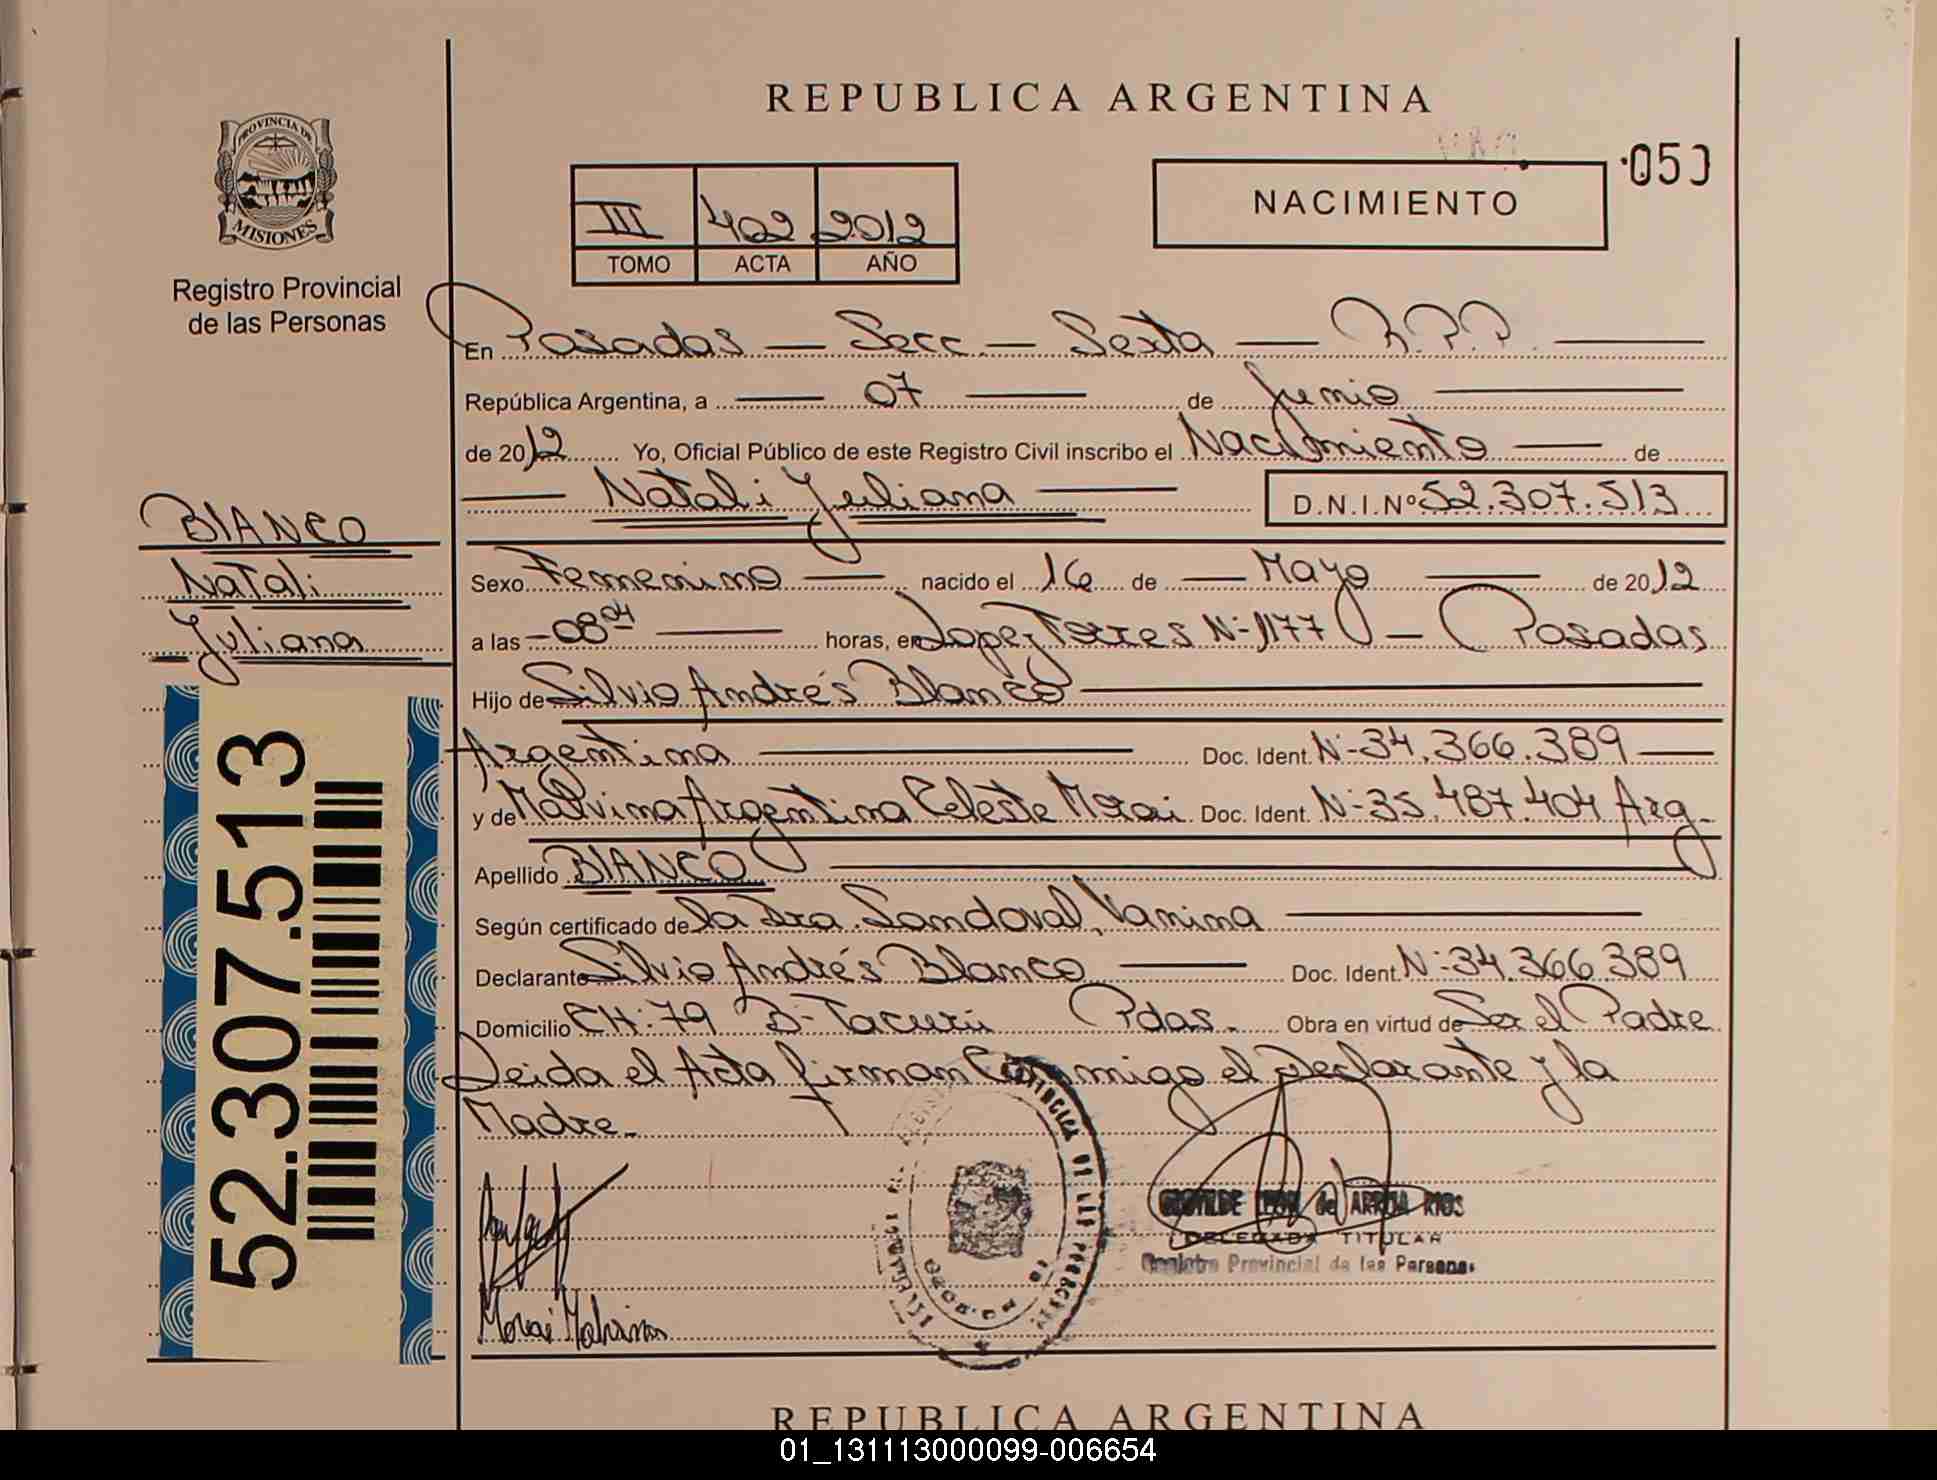 REPUBLICA ARGENTINA
PROVINCIA DE
MISIONES
Registro Provincial
de las Personas
III 402 2012
TOMO ACTA AÑO
NACIMIENTO
050
En Posadas — Secc. — Sexta — R.P.P.
República Argentina, a — 07 — de Junio
de 2012 Yo, Oficial Público de este Registro Civil inscribo el Nacimiento — de
Natali Juliana D.N.I.Nº 52.307.513
BLANCO
Natali
Juliana
Sexo Femenino — nacido el 16 de — Mayo — de 2012
a las - 08 04 — horas, en Lopez Torres N-1177 — Posadas
Hijo de Silvio Andrés Blanco
Argentina — Doc. Ident. N-34.366.389
y de Malvina Argentina Celeste Morai Doc. Ident. N-35.487.404 Arg.
Apellido BLANCO
Según certificado de la Dra. Sandoval, Vanina
Declarante Silvio Andrés Blanco — Doc. Ident. N-34.366.389
Domicilio CH: 79 B- Tacurú Pdas. Obra en virtud de Ser el Padre
Leida el Acta firman Conmigo el Declarante y la
Madre.
52.307.513
de ARRUA RIOS
DELEGADA TITULAR
Registro Provincial de las Personas
Morai Malvina
REPUBLICA ARGENTINA
01_131113000099-006654